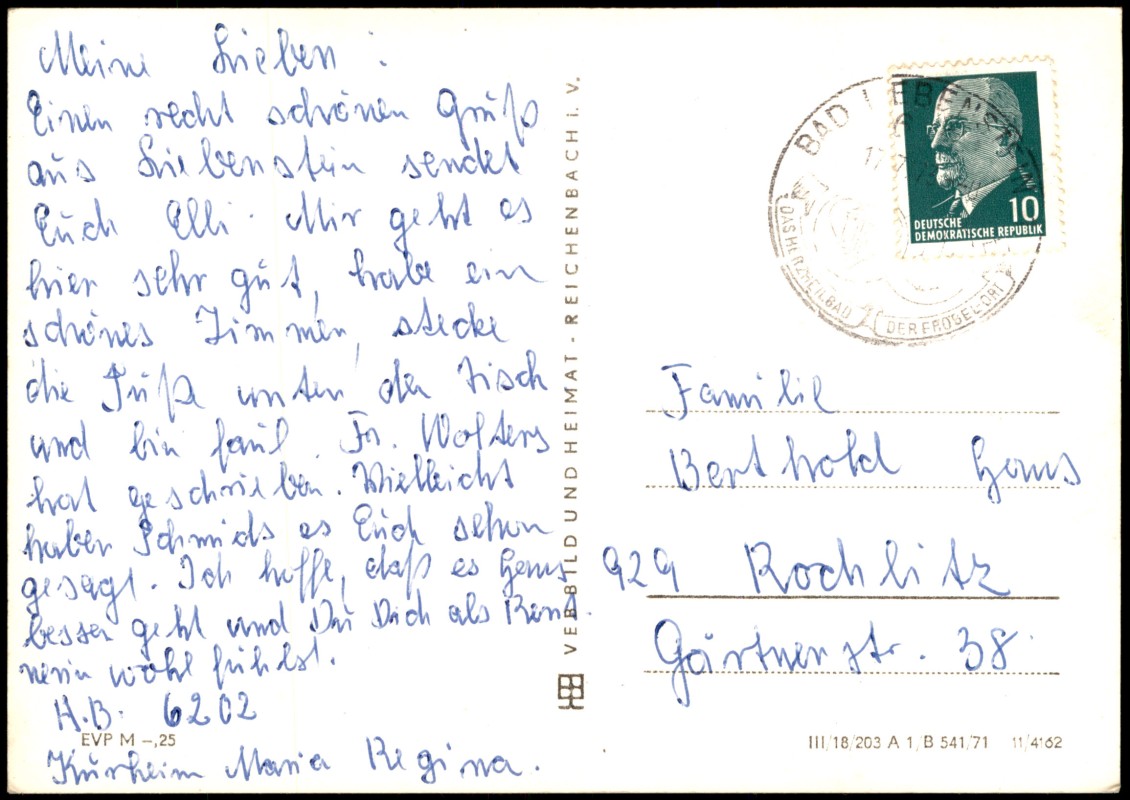 Meine Lieben!
Einen recht schönen Gruß
aus Liebenstein sendet
Euch Elli. Mir geht es
hier sehr gut, habe ein
schönes Zimmer, stecke
die Füße unter den Tisch
und bin faul. Fr. Wolters
hat geschrieben. Vielleicht
haben Schmids es Euch schon
gesagt. Ich hoffe, daß es Hans
besser geht und Du Dich als Rent
nerin wohl fühlst.
H.B. 6202
Kurheim Maria Regina.
EVP M –,25
VEB BILD UND HEIMAT - REICHENBACH i. V.
BAD LIEBENSTEIN
17.
DAS HERZHEILBAD
DER FRÖBEL-ORT
10
DEUTSCHE
DEMOKRATISCHE REPUBLIK
Familie
Berthold Hans
929 Rochlitz
Gärtnerstr. 38
III/18/203 A 1/B 541/71 11/4162